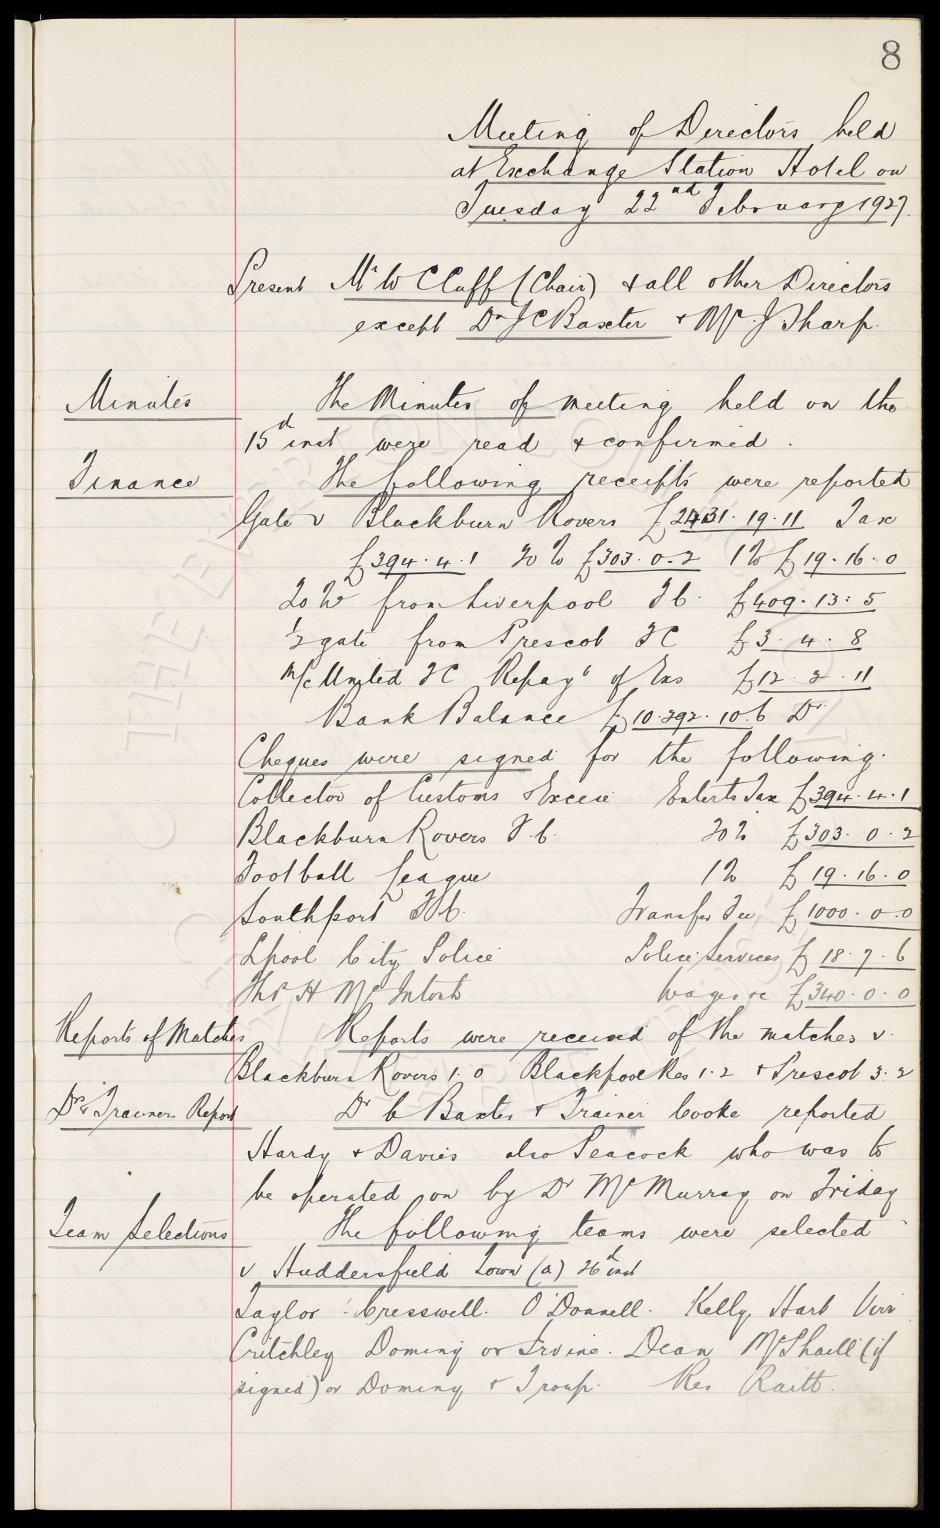 8
Meeting of Directors held
at Exchange Station Hotel on
Tuesday 22nd February 1927.
Present Mr W C Cuff (Chair) & all other Directors
except Dr J C Baxter & Mr J Sharp.
Minutes The Minutes of meeting held on the
15th inst were read & confirmed.
Finance The following receipts were reported
Gate v Blackburn Rovers £2431.19.11 Tax
£394.4.1 20% £303.0.2 1% £19.16.0
20% from Liverpool F C. £409.13.5
½ gate from Prescot F C £3.4.8
M/c United F C Repayt of Exs £12.2.11
Bank Balance £10.292.10.6 Dr
Cheques were signed for the following.
Collector of Customs & Excise Enterts Tax £394.4.1
Blackburn Rovers F.C. 20% £303.0.2
Football League 1% £19.16.0
Southport F C. Transfer Fee £1000.0.0
Lpool City Police Police Services £18.7.6
Thos H McIntosh Wages &c £340.0.0
Reports of Matches Reports were received of the matches v.
Blackburn Rovers 1.0 Blackpool Res 1.2 & Prescot 3.2
Drs & Trainers Report Dr C Baxter & Trainer Cooke reported
Hardy & Davies also Peacock who was to
be operated on by Dr McMurray on Friday
Team Selections The following teams were selected
v Huddersfield Town (a) 26th inst
Taylor. Cresswell. O'Donnell. Kelly, Hart Virr
Critchley Dominy or Irvine. Dean McPhail (if
signed) or Dominy & Troup. Res Raitt.